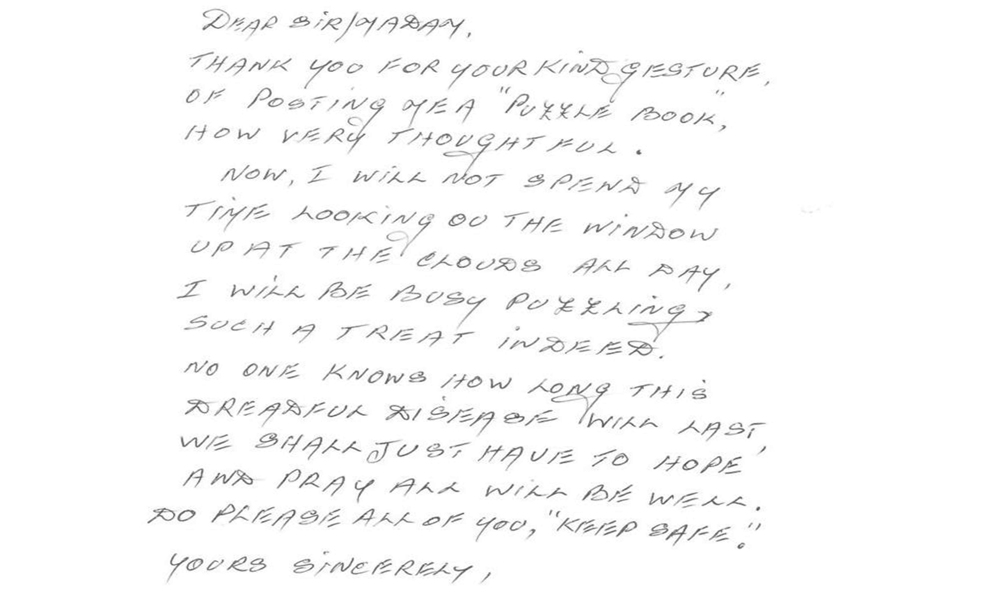 DEAR SIR/MADAM,
THANK YOU FOR YOUR KIND GESTURE,
OF POSTING ME A "PUZZLE BOOK",
HOW VERY THOUGHTFUL.
NOW, I WILL NOT SPEND MY
TIME LOOKING OU THE WINDOW
UP AT THE CLOUDS ALL DAY,
I WILL BE BUSY PUZZLING,
SUCH A TREAT INDEED.
NO ONE KNOWS HOW LONG THIS
DREADFUL DISEASE WILL LAST,
WE SHALL JUST HAVE TO HOPE
AND PRAY ALL WILL BE WELL.
DO PLEASE ALL OF YOU, "KEEP SAFE."
YOURS SINCERELY,